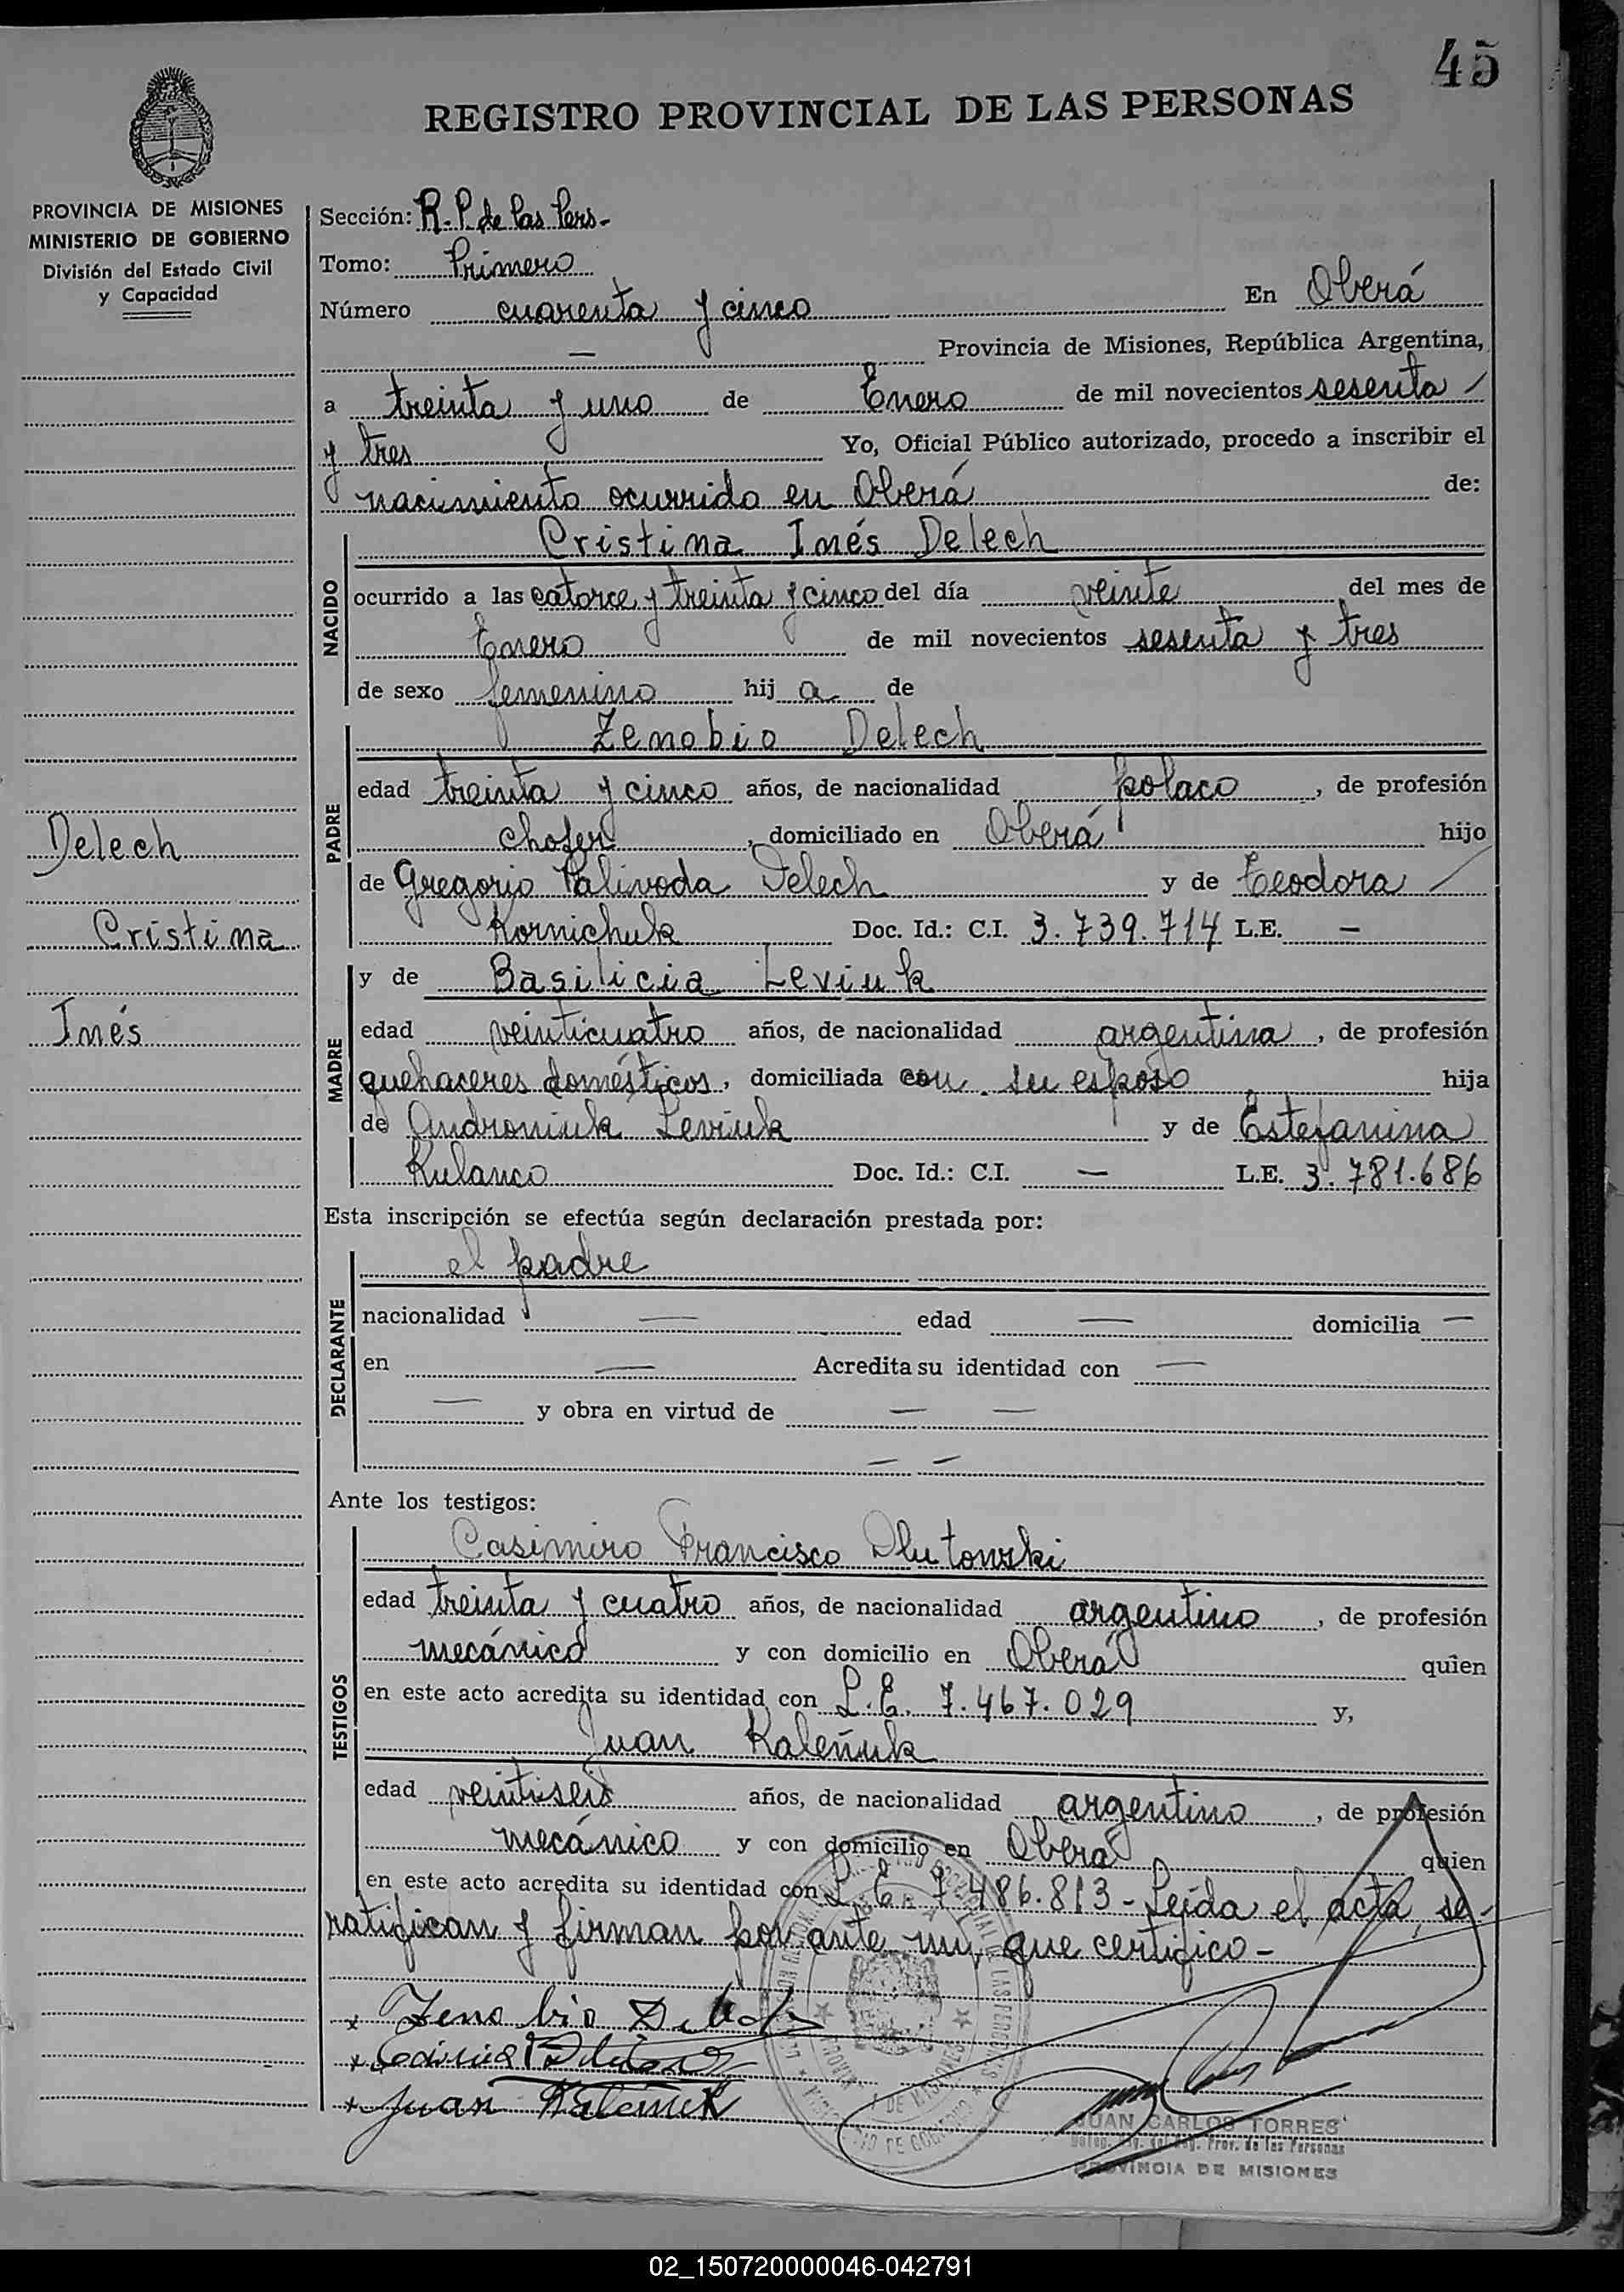 45
REGISTRO PROVINCIAL DE LAS PERSONAS
PROVINCIA DE MISIONES
MINISTERIO DE GOBIERNO
División del Estado Civil
y Capacidad
Delech
Cristina
Inés
Sección: R.P. de las Pers-
Tomo: Primero
Número cuarenta y cinco En Oberá
— Provincia de Misiones, República Argentina,
a treinta y uno de Enero de mil novecientos sesenta
y tres Yo, Oficial Público autorizado, procedo a inscribir el
nacimiento ocurrido en Oberá de:
NACIDO
Cristina Inés Delech
ocurrido a las catorce y treinta y cinco del día veinte del mes de
Enero de mil novecientos sesenta y tres
de sexo femenino hij a de
PADRE
Zenobio Delech
edad treinta y cinco años, de nacionalidad polaco, de profesión
chofer, domiciliado en Oberá hijo
de Gregorio Palivoda Delech y de Teodora
Kornichuk Doc. Id.: C.I. 3.739.714 L.E. —
MADRE
y de Basilicia Leviuk
edad veinticuatro años, de nacionalidad argentina, de profesión
quehaceres domésticos, domiciliada con su esposo hija
de Androniuk Leviuk y de Estefanina
Kulanco Doc. Id.: C.I. — L.E. 3.781.686
Esta inscripción se efectúa según declaración prestada por:
DECLARANTE
el padre
nacionalidad — edad — domicilia —
en — Acredita su identidad con —
— y obra en virtud de — —
— —
Ante los testigos:
TESTIGOS
Casimiro Francisco Dlutowski
edad treinta y cuatro años, de nacionalidad argentino, de profesión
mecánico y con domicilio en Oberá quien
en este acto acredita su identidad con L.E. 7.467.029 y,
Juan Kaleñuk
edad veintiseis años, de nacionalidad argentino, de profesión
mecánico y con domicilio en Oberá quien
en este acto acredita su identidad con L.E. 7.486.813- Leída el acta, se
ratifican y firman por ante mi, que certifico-
x Zenobio Delech
x
x Juan Kaleñuk
JUAN CARLOS TORRES
Prov. de las Personas
PROVINCIA DE MISIONES
02_150720000046-042791